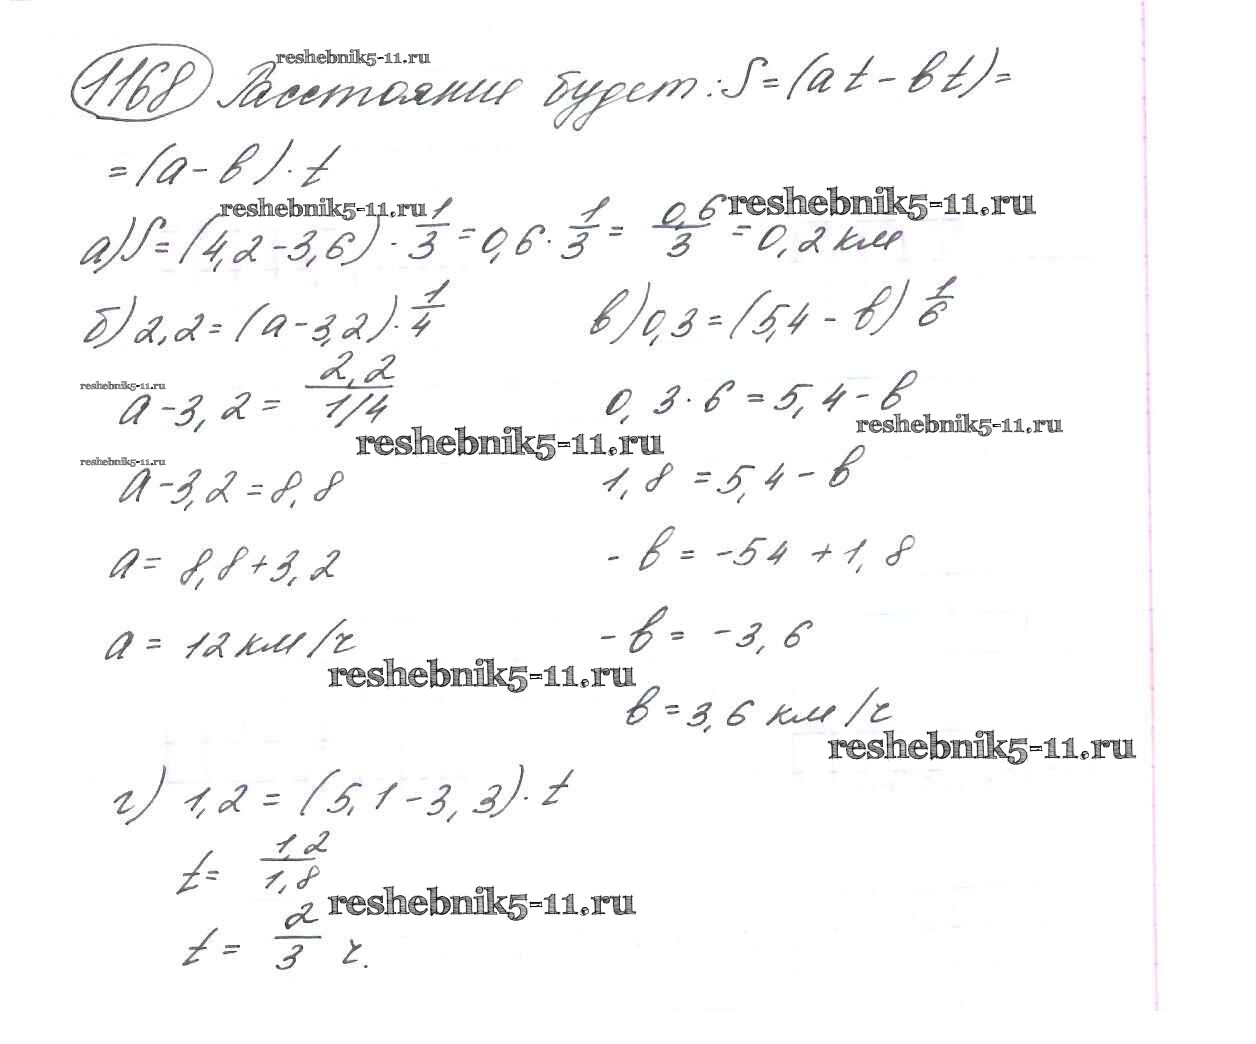 reshebnik5-11.ru
1168 Расстояние будет: S = (at - вt) =
= (a - в) · t
reshebnik5-11.ru
reshebnik5-11.ru
а) S = (4,2 - 3,6) · 1/3 = 0,6 · 1/3 = 0,6/3 = 0,2 км
б) 2,2 = (a - 3,2) · 1/4
reshebnik5-11.ru
a - 3,2 = 2,2 / 1/4
reshebnik5-11.ru
reshebnik5-11.ru
a - 3,2 = 8,8
a = 8,8 + 3,2
a = 12 км/ч
reshebnik5-11.ru
в) 0,3 = (5,4 - в) 1/6
0,3 · 6 = 5,4 - в
reshebnik5-11.ru
1,8 = 5,4 - в
- в = -54 + 1,8
- в = -3,6
в = 3,6 км/ч
reshebnik5-11.ru
г) 1,2 = (5,1 - 3,3) · t
t = 1,2/1,8
reshebnik5-11.ru
t = 2/3 ч.